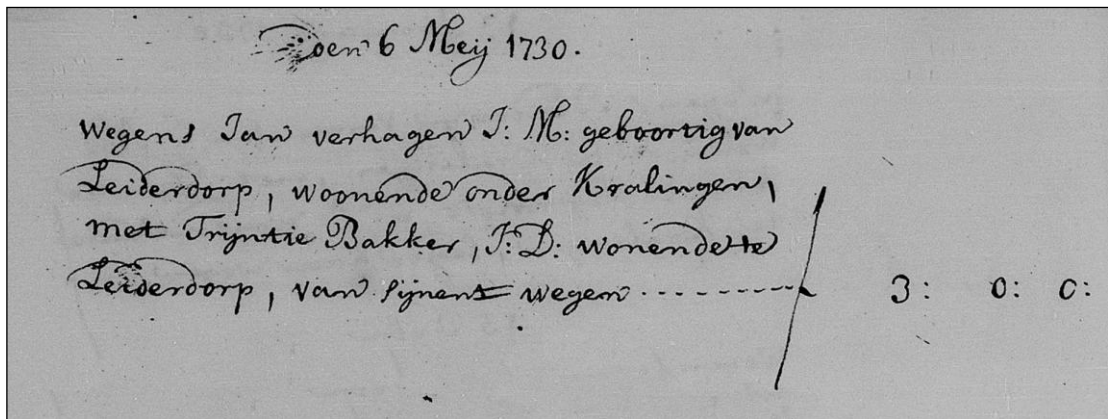 Den 6 Meij 1730.
Wegens Jan verhagen J: M: geboortig van
Leiderdorp, woonende onder Kralingen,
met Trijntie Bakker, J: D: wonende te
Leiderdorp, van sijnent wegen ---------- 3: 0: 0: